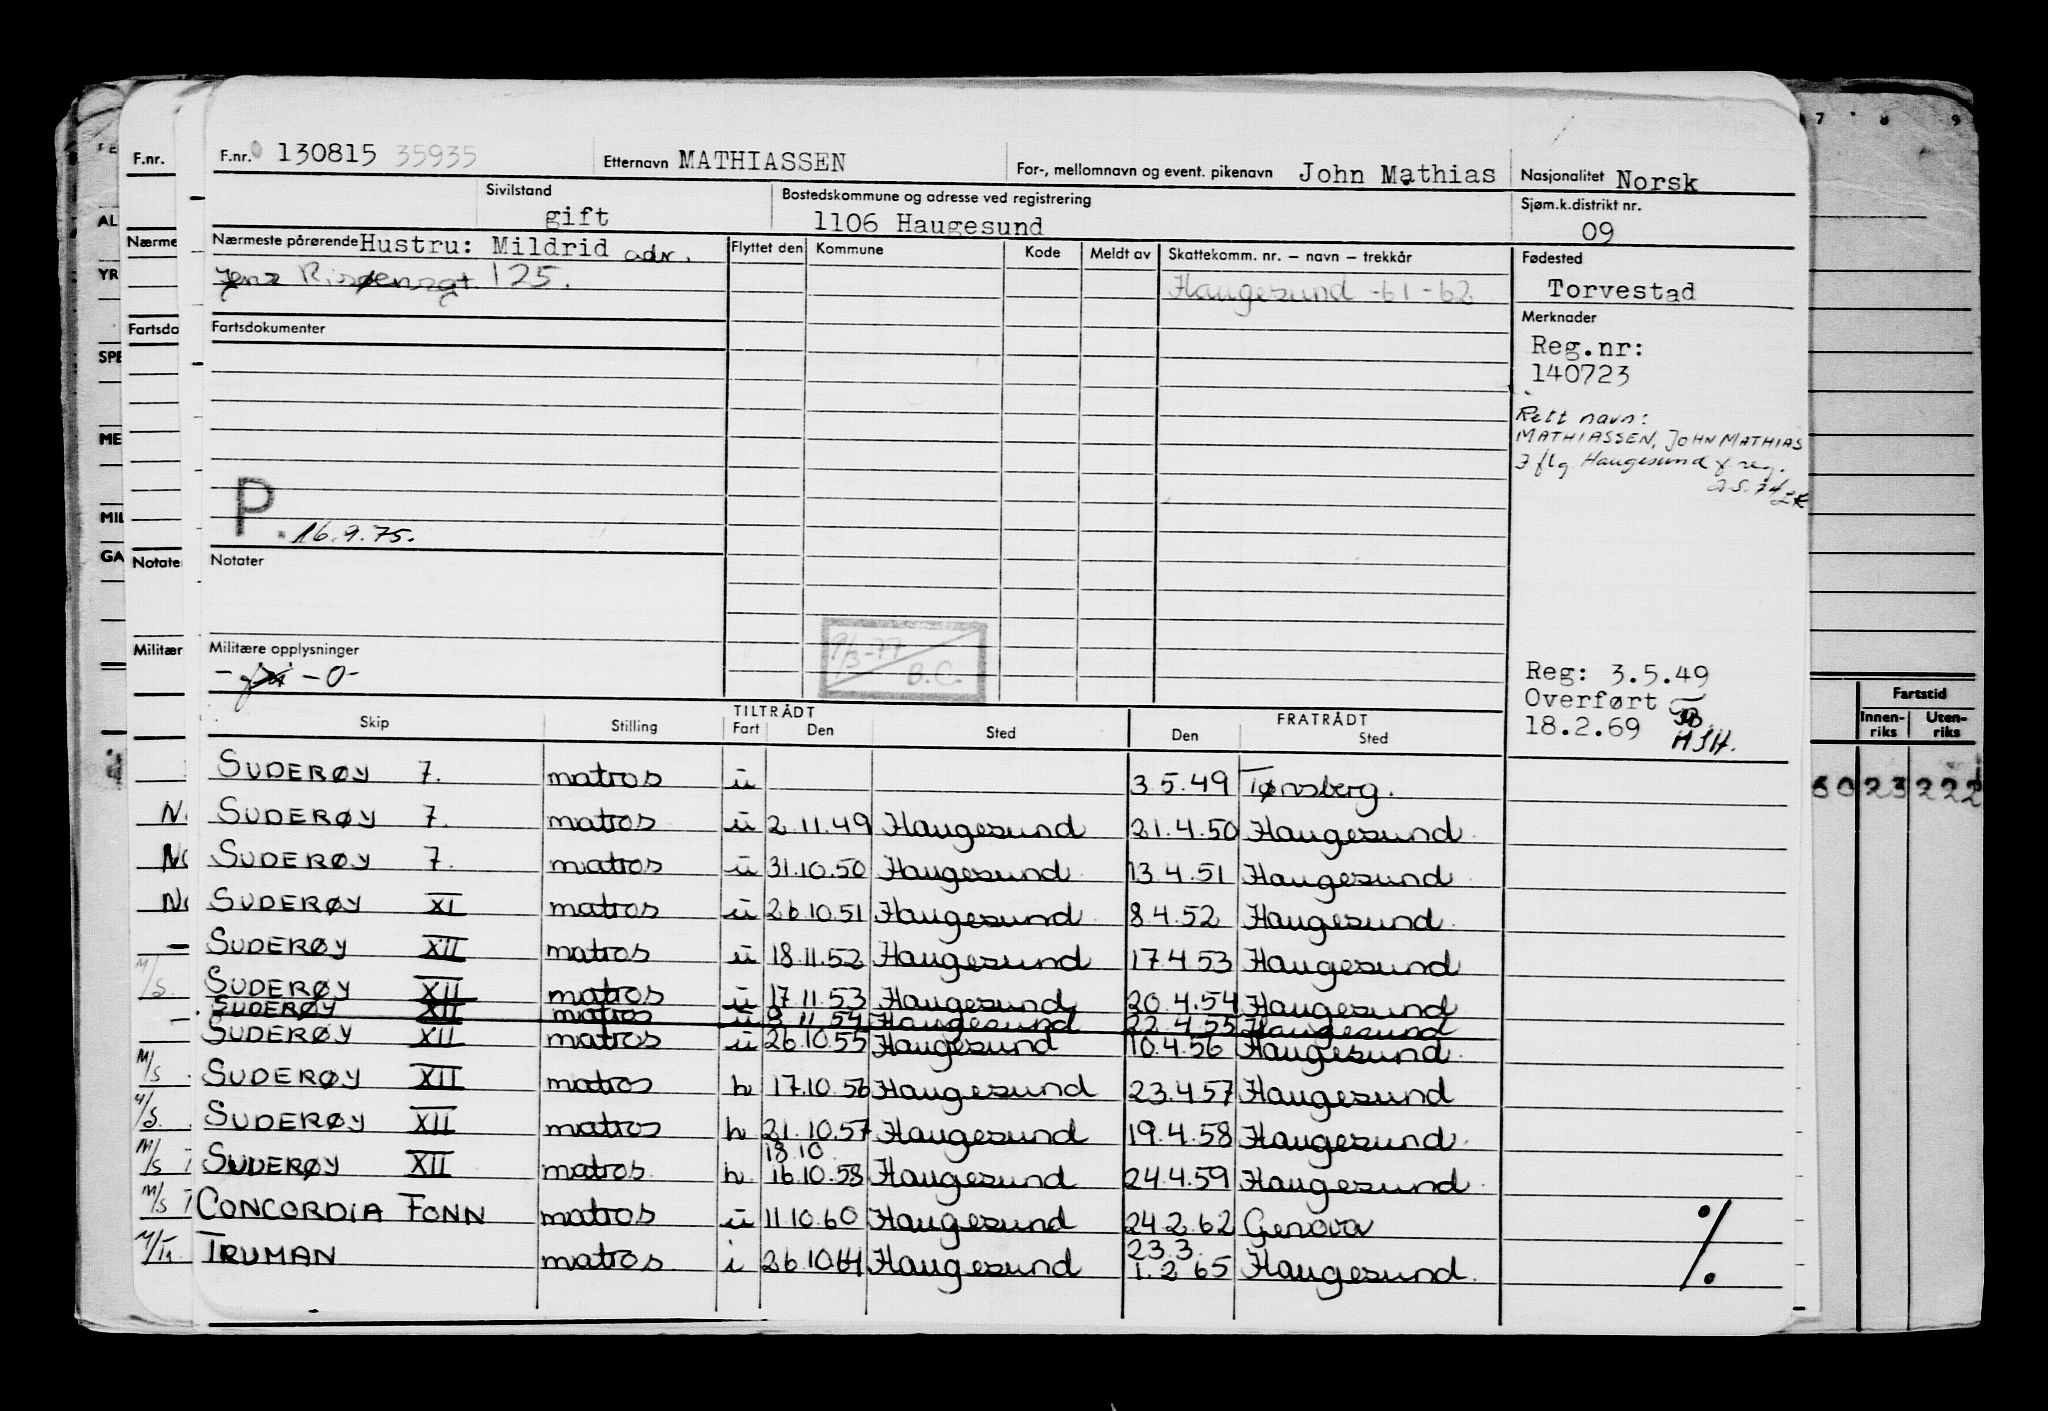 F.nr. 130815 35935 Etternavn MATHIASSEN For-, mellomnavn og event. pikenavn John Mathias Nasjonalitet Norsk
Sivilstand gift Bostedskommune og adresse ved registrering 1106 Haugesund Sjøm.k.distrikt nr. 09
Nærmeste pårørende Hustru: Mildrid adr. Flyttet den Kommune Kode Meldt av Skattekomm. nr. – navn – trekkår Fødested
125. Haugesund -61-62 Torvestad
Fartsdokumenter Merknader
Reg.nr:
140723
Rett navn:
MATHIASSEN, JOHN MATHIAS
I flg. Haugesund f. reg.
P. 16.9.75.
Notater
Militære opplysninger
-0-
9/3-77 B.C.
Reg: 3.5.49
Overført
18.2.69
MSH.
TILTRÅDT FRATRÅDT
Skip Stilling Fart Den Sted Den Sted
SUDERØY 7. matros u 3.5.49 Tønsberg.
SUDERØY 7. matros u 2.11.49 Haugesund 21.4.50 Haugesund
SUDERØY 7. matros u 31.10.50 Haugesund 13.4.51 Haugesund
SUDERØY XI matros u 26.10.51 Haugesund 8.4.52 Haugesund
SUDERØY XII matros u 18.11.52 Haugesund 17.4.53 Haugesund
SUDERØY XII matros u 17.11.53 Haugesund 20.4.54 Haugesund
SUDERØY XII matros u 3.11.54 Haugesund 22.4.55 Haugesund
SUDERØY XII matros u 26.10.55 Haugesund 10.4.56 Haugesund
SUDERØY XII matros h 17.10.56 Haugesund 23.4.57 Haugesund
SUDERØY XII matros h 21.10.57 Haugesund 19.4.58 Haugesund
18.10
SUDERØY XII matros h 16.10.58 Haugesund 24.4.59 Haugesund
CONCORDIA FONN matros u 11.10.60 Haugesund 24.2.62 Genova
23.3.
TRUMAN matros i 26.10.64 Haugesund 1.2.65 Haugesund
F.nr.
Nærme
Fartsdo
Notate
Militær
AL
YR
SPE
ME
MIL
GA
7 8 9
Fartstid
Innen-riks Uten-riks
23 222